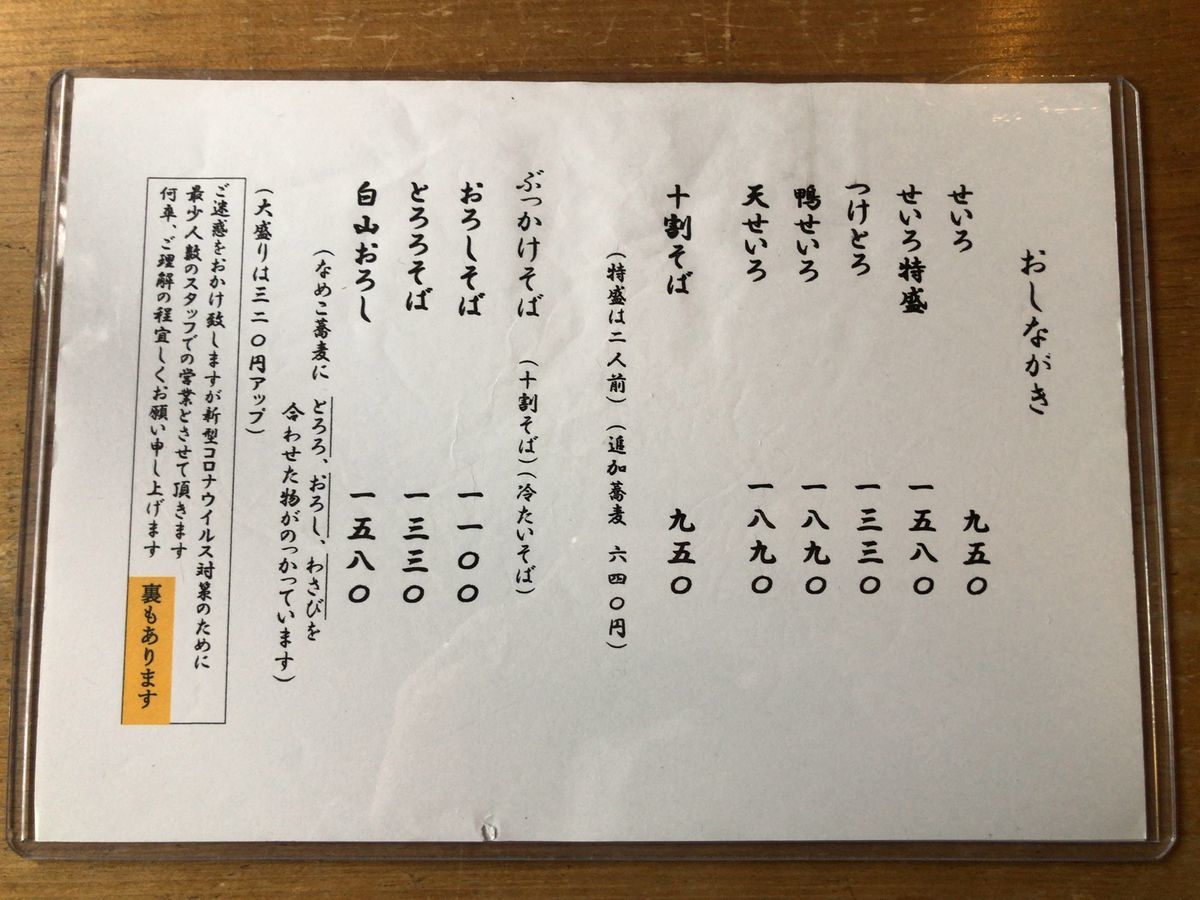 おしながき
せいろ 九五〇
せいろ特盛 一五八〇
つけとろ 一三三〇
鴨せいろ 一八九〇
天せいろ 一八九〇
十割そば 九五〇
(特盛は二人前)(追加蕎麦 六四〇円)
ぶっかけそば (十割そば)(冷たいそば)
おろしそば 一一〇〇
とろろそば 一三三〇
白山おろし 一五八〇
(なめこ蕎麦に とろろ、おろし、わさびを
合わせた物がのつかっています)
(大盛りは三二〇円アップ)
ご迷惑をおかけ致しますが新型コロナウイルス対策のために
最少人数のスタッフでの営業とさせて頂きます
何卒、ご理解の程宜しくお願い申し上げます
裏もあります